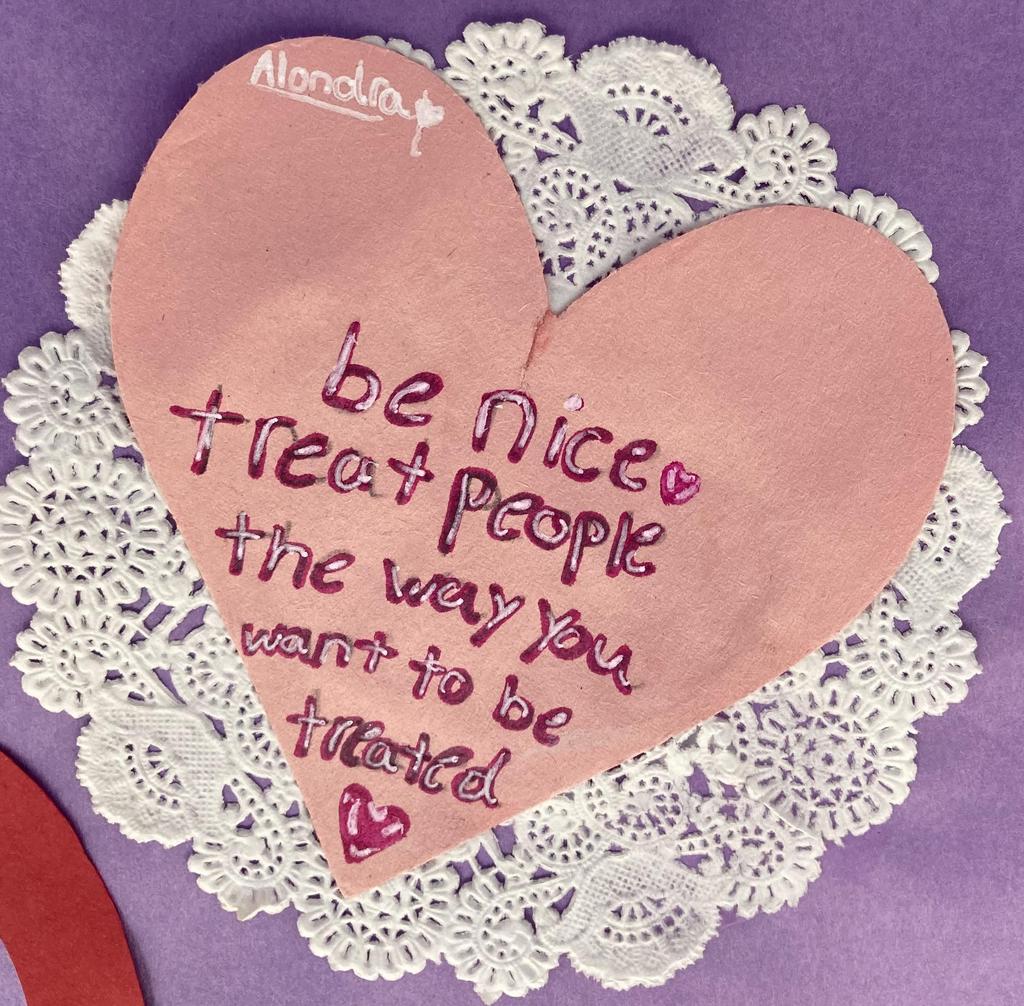 Alondra
be nice
treat people
the way you
want to be
treated